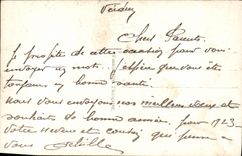 Verdun
Chers Parents
Je profite de cette occasion pour vous
envoyer un mot. J'espère que vous êtes
toujours en bonne santé
nous vous envoyons nos meilleurs vœux et
souhaits de bonne année, pour 1923
votre neveu et cousin qui pense
à vous Achille